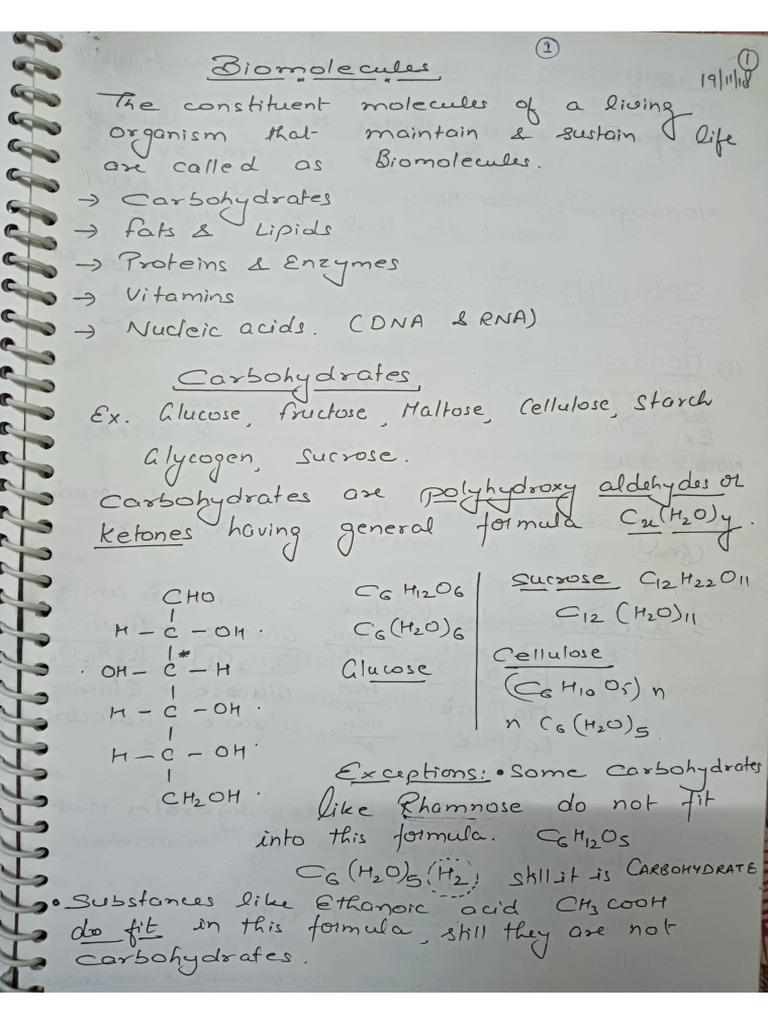 1
1
19/11/18
Biomolecules
The constituent molecules of a living
organism that maintain & sustain life
are called as Biomolecules.
→ Carbohydrates
→ Fats & Lipids
→ Proteins & Enzymes
→ Vitamins
→ Nucleic acids. (DNA & RNA)
Carbohydrates
Ex. Glucose, fructose, Maltose, Cellulose, Starch
Glycogen, Sucrose.
Carbohydrates are polyhydroxy aldehydes or
ketones having general formula Cx(H2O)y.
CHO
H – C – OH
*
OH – C – H
H – C – OH
H – C – OH
CH2OH
C6H12O6
C6(H2O)6
Glucose
Sucrose C12H22O11
C12(H2O)11
Cellulose
(C6H10O5)n
n C6(H2O)5
Exceptions: • Some Carbohydrates
like Rhamnose do not fit
into this formula. C6H12O5
C6(H2O)5(H2) still it is CARBOHYDRATE
• Substances like Ethanoic acid CH3COOH
do fit in this formula, still they are not
carbohydrates.